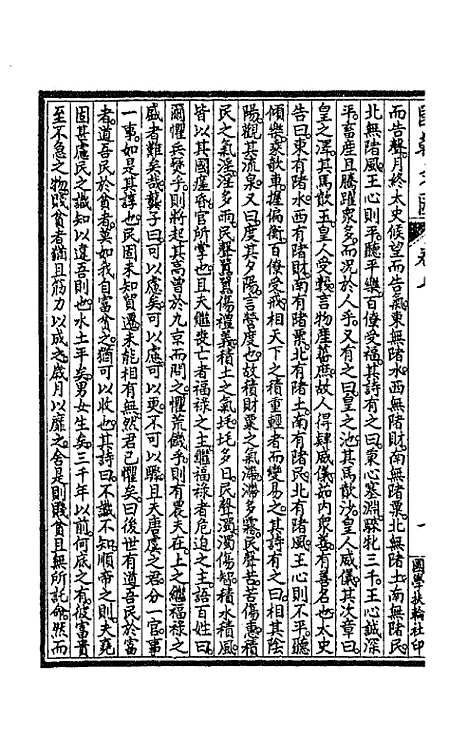 國朝文匯 卷七
國學扶輪社印
而告聲。月終太史候望而告氣。東無陼水。西無陼財。南無陼粟。北無陼土。南無陼民。
北無陼風。王心則平。聽平樂。百僚受福。其詩有之曰。秉心塞淵。騋牝三千。王心誠深
平。畜產且騰躍眾多。而況於人乎。又有之曰。皇之池。其馬歕沙。皇人威儀。其次章曰。
皇之澤。其馬歕玉。皇人受穀。言物產蕃庶。故人得肄威儀。茹內眾善。有善名也。太史
告曰。東有陼水。西有陼財。南有陼粟。北有陼土。南有陼民。北有陼風。王心則不平。聽
傾樂。乘欹車。握偏衡。百僚受戒。相天下之積重輕者而變易之。其詩有之曰。相其陰
陽。觀其流泉。又曰。度其夕陽。言營度也。故積財粟之氣滯。滯多霧。民聲苦。苦傷惠。積
民之氣淫。淫多雨。民聲嚻。嚻傷禮義。積土之氣圫。圫多日。民聲濁。濁傷智。積水積風。
皆以其國瘥昏。官所掌也。且夫繼喪亡者。福祿之主。繼福祿者。危迫之主。語百姓曰。
爾懼兵燹乎。則將起其高曾於九京而問之。懼荒饑乎。則有農夫在。上之繼福祿之
盛者難矣哉。龔子曰。可以慮矣。可以慮。可以更。不可以驟。且夫唐虞之君。分一官。事
一事。如是其諄也。民固未知貿遷。未能相有無。然君已懼矣。曰後世有道吾民於富
者。道吾民於貧者。莫如我自富貧之。猶可以收也。其詩曰。不識不知。順帝之則。夫堯
固甚慮民之識知以違吾則也。水土平矣。男女生矣。三千年以前。何底之有。彼富貴
至不急之物。賤貧者猶且筋力以成之。歲月以靡之。舍是則賤貧且無所託命。然而